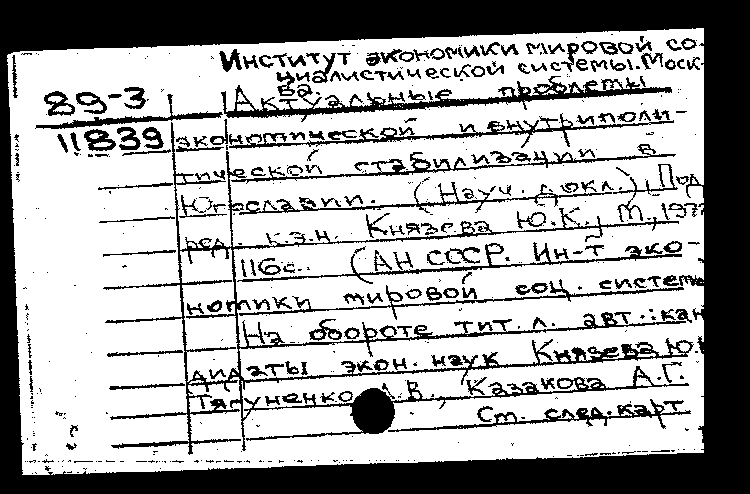 Институт экономики мировой со-
циалистической системы. Моск-
ва.
89-3
Актуальные проблемы
11839
экономической и внутриполи-
тической стабилизации в
Югославии. (Науч. докл.), Под
ред. к.э.н. Князева Ю.К., М.,
116с. (АН СССР. Ин-т эко-
номики мировой соц. системы
На обороте тит. л. авт.: кан
дидаты экон. наук Князева Ю.
Тягуненко .В., Казакова А.Г.
См. след. карт